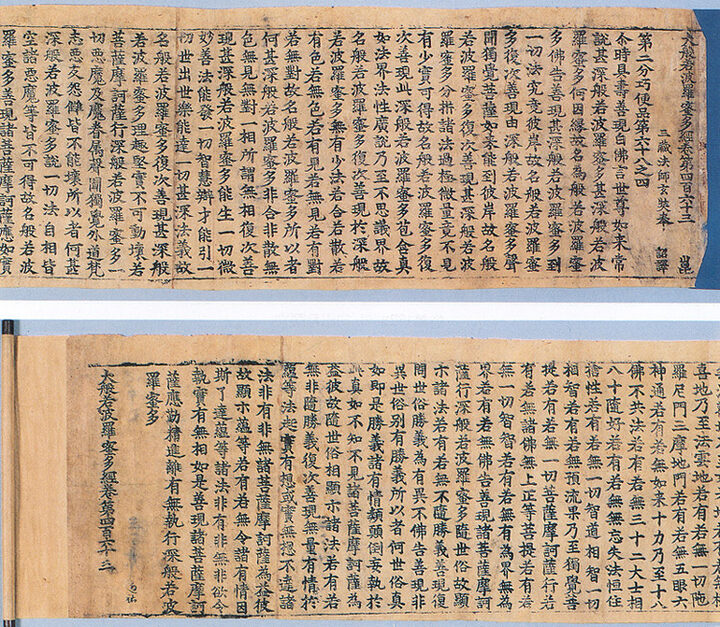 大般若波羅蜜多經卷第四百六十三 崑
三藏法師玄奘奉 詔譯
第二分巧便品第六十八之四
尒時具壽善現白佛言世尊如來常
說甚深般若波羅蜜多甚深般若波
羅蜜多何因緣故名為般若波羅蜜
多佛告善現甚深般若波羅蜜多到
一切法究竟彼岸故名般若波羅蜜
多復次善現由深般若波羅蜜多聲
聞獨覺菩薩如來能到彼岸故名般
若波羅蜜多復次善現甚深般若波
羅蜜多分拆諸法過極微量竟不見
有少實可得故名般若波羅蜜多復
次善現此深般若波羅蜜多苞含真
如法界法性廣說乃至不思議界故
名般若波羅蜜多復次善現於深般
若波羅蜜多無有少法若合若散若
有色若無色若有見若無見若有對
若無對故名般若波羅蜜多所以者
何甚深般若波羅蜜多非合非散無
色無見無對一相所謂無相復次善
現甚深般若波羅蜜多能生一切微
妙善法能發一切智慧辯才能引一
切世出世樂能達一切甚深法義故
名般若波羅蜜多復次善現甚深般
若波羅蜜多理趣堅實不可動壞若
菩薩摩訶薩行深般若波羅蜜多一
切惡魔及魔眷屬聲聞獨覺外道梵
志惡友怨讎皆不能壞所以者何甚
深般若波羅蜜多說一切法自相皆
空諸惡魔等皆不可得故名般若波
羅蜜多善現諸菩薩摩訶薩應如實
喜地乃至法雲地若有若無一切陁
羅尼門三摩地門若有若無五眼六
神通若有若無如來十力乃至十八
佛不共法若有若無三十二大士相
八十隨好若有若無無忘失法恒住
捨性若有若無一切智道相智一切
相智若有若無預流果乃至獨覺菩
提若有若無一切菩薩摩訶薩行若
有若無諸佛無上正等菩提若有若
無一切智智若有若無有為界無為
界若有若無佛告善現諸菩薩摩訶
薩行深般若波羅蜜多隨世俗故顯
示諸法若有若無不隨勝義善現復
問世俗勝義為有異不佛告善現非
異世俗別有勝義所以者何世俗真
如即是勝義諸有情類顛倒妄執於
此真如不知不見諸菩薩摩訶薩為
益彼故隨世俗相顯示諸法若有若
無非隨勝義復次善現無量有情於
蘊等法起實有想或實無想不達諸
法非有非無諸菩薩摩訶薩為益彼
故顯示蘊等若有若無令諸有情因
斯了達蘊等諸法非有非無非欲令
執實有無相如是善現諸菩薩摩訶
薩應勤精進離有無執行深般若波
羅蜜多
大般若波羅蜜多經卷第四百六十三